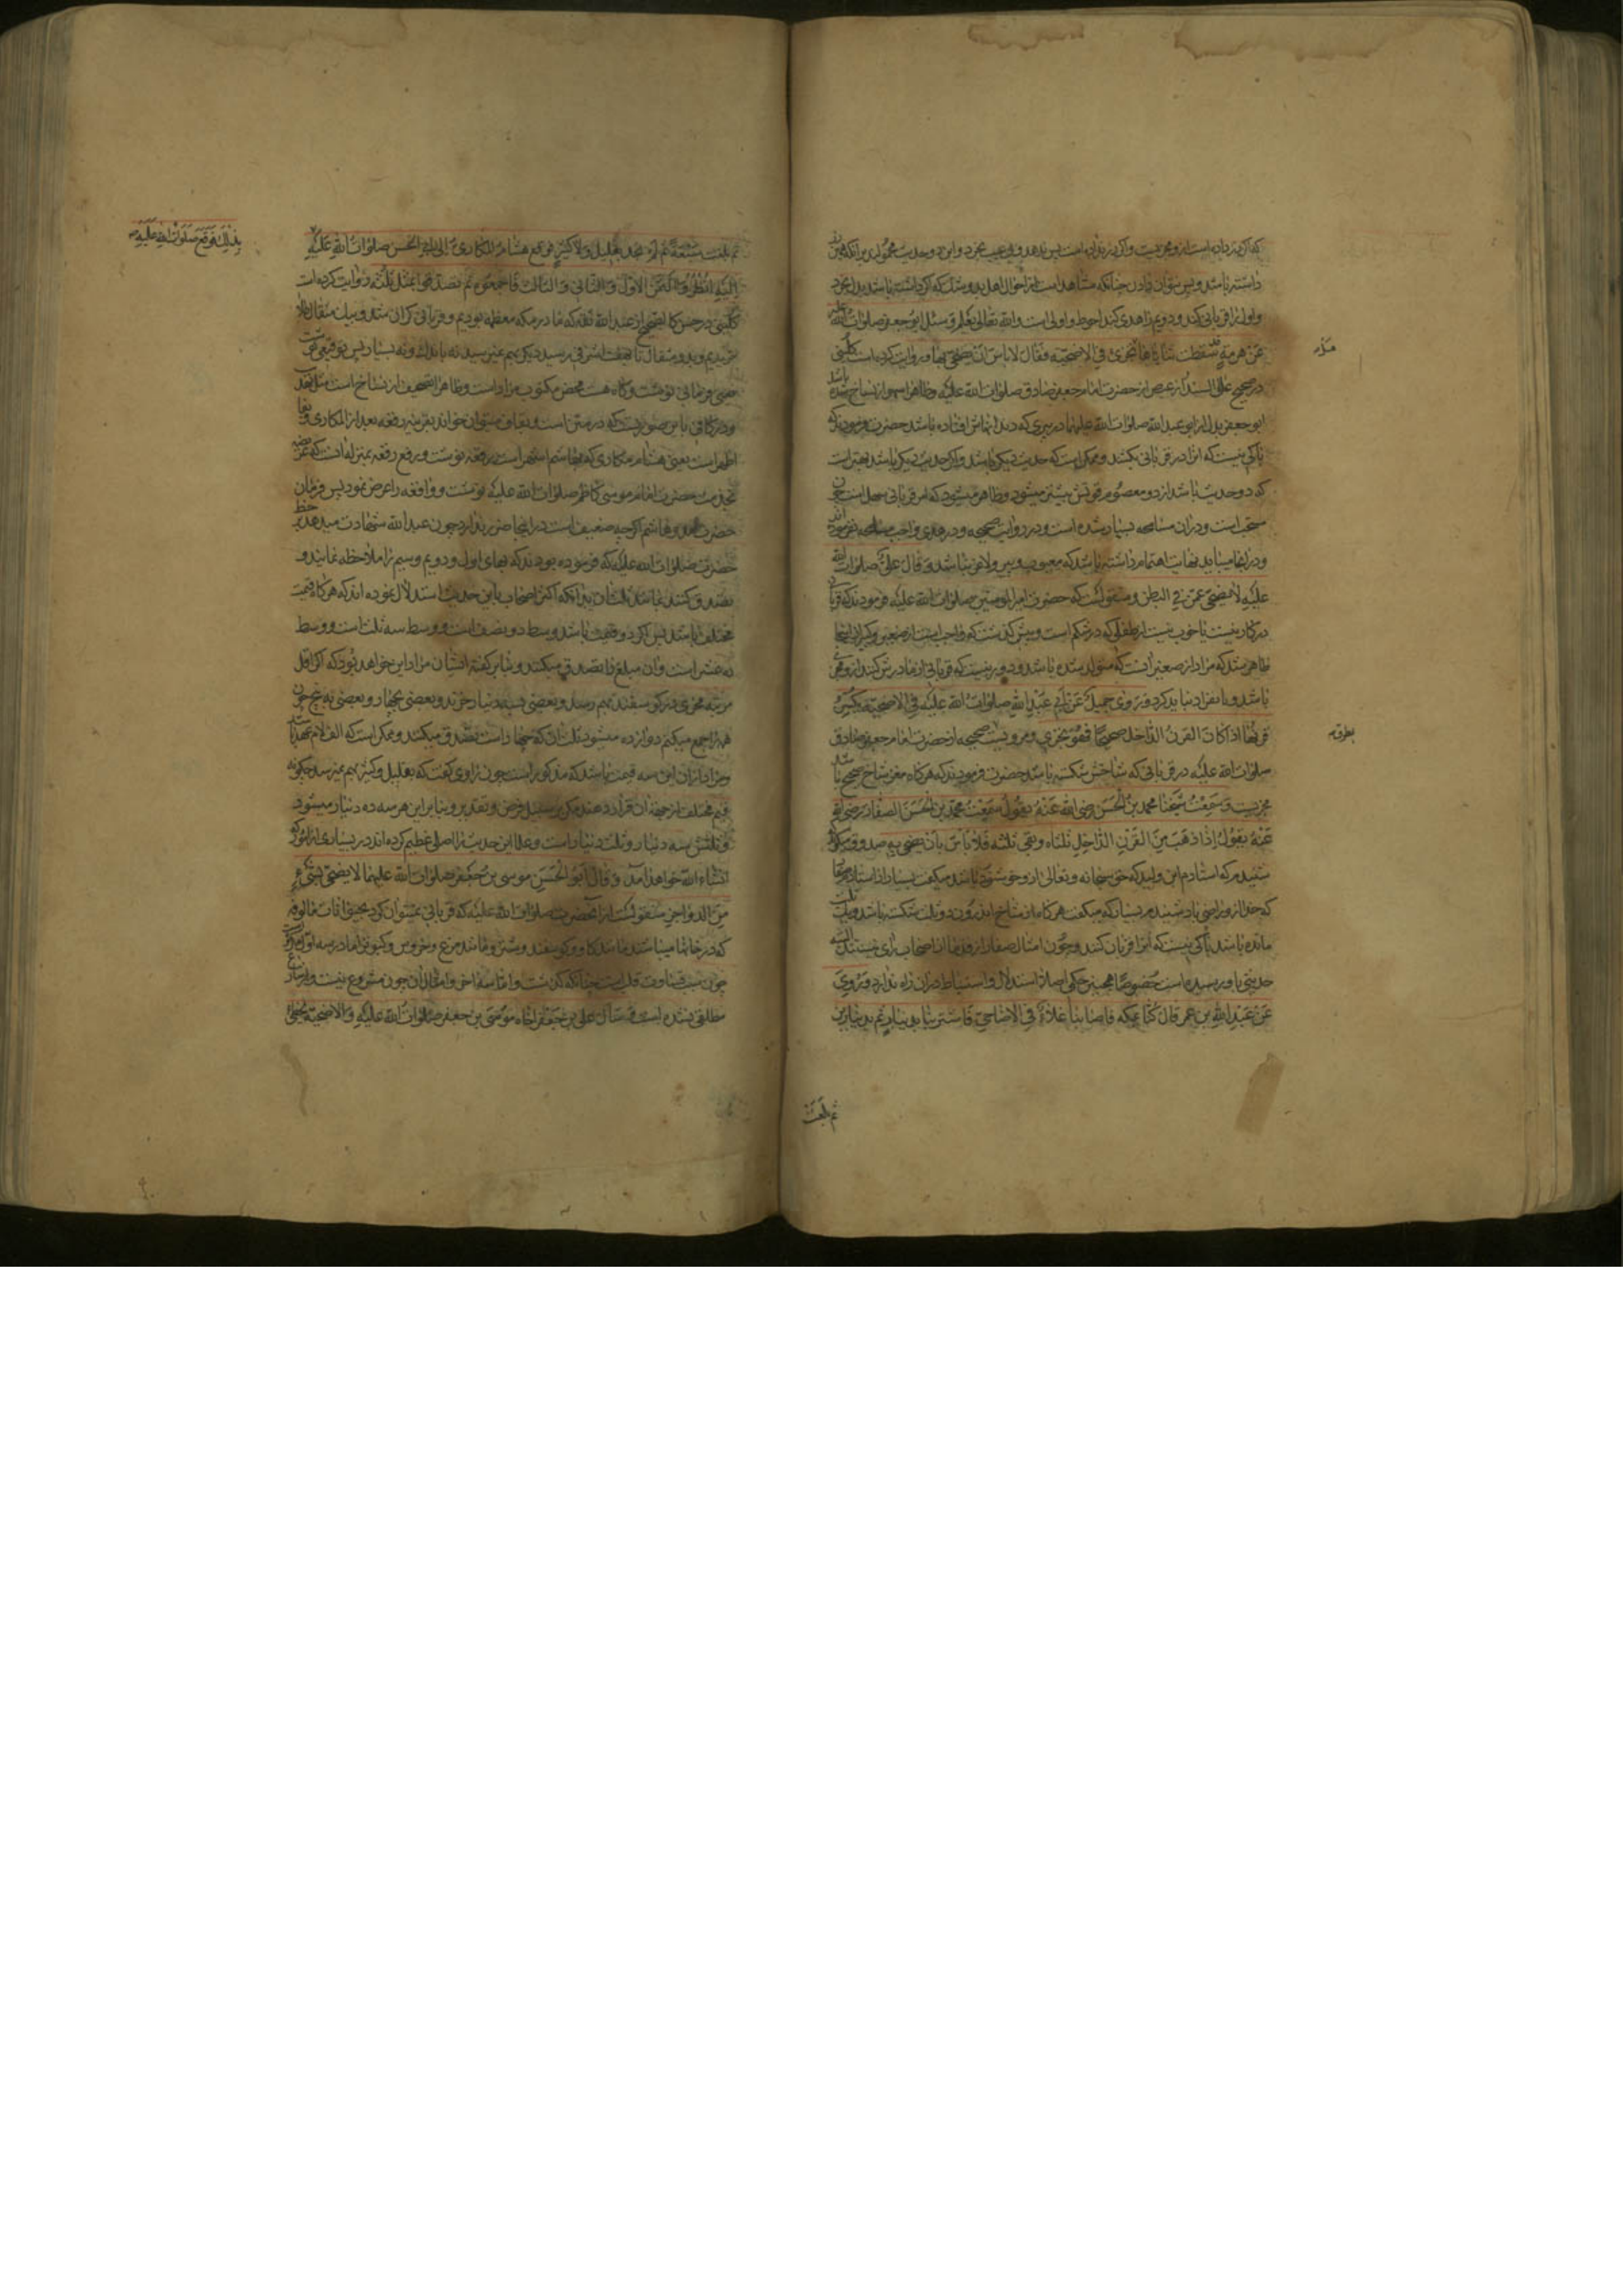 که اگر زر داده است از و مجزیست و اگر زر نداده است پس ندهد و بی عیب بخرد و این دو حدیث محمولند بر آنکه
داشته باشد و پس بتوان دادن چنانکه مشاهد است از احوال اهل بدو
و اول را قربانی کند و دویم را هدی کند احوط و اولی است والله تعالی یعلم وسئل ابو جعفر صلوات الله علیه
عن هرمة قد سقطت ثنایاها تجزی فی الاضحیة فقال لا باس ان یضحی بها و روایت کرده است کلینی
در صحیح علی السندی از عیص از حضرت امام جعفر صادق صلوات الله علیه و ظاهرا سهو از نساخ شده باشد
ابو جعفر بدل از ابو عبد الله صلوات الله علیهما در پیری که دندانهاش افتاده باشد حضرت فرمودند که
باکی نیست که آنرا در قربانی بکشند و ممکن است که حدیث دیگر باشد و اگر حدیث دیگر باشد بهتر است
که دو حدیث باشد از دو معصوم قوتش بیشتر میشود و ظاهر میشود که امر قربانی سهل است چون
سنحب است و در آن مسامحه بسیار شده است و در روایت صحیحه و در هدی واجب مسامحه نفرموده اند
و در آنها میباید نهایت اهتمام داشته باشد که معیوب و پیر و لاغر نباشد وقال علی صلوات الله
علیه لا یضحی عمن فی البطن و منقولست که حضرت امیر المومنین صلوات الله علیه فرمودند که قربانی
در کار نیست یا خوب نیست از طفلی که در شکم است و پیش گذشت که واجب است از صغیر و کبیر از اینجا
ظاهر شد که مراد از صغیر آنست که متولد شده باشد و دور نیست که قربانی او مادرش کند از و مجزی
باشد و بانفراد نباید کرد وروی جمیل عن ابی عبد الله صلوات الله علیه فی الاضحیة یکسر
قرنها اذا کان القرن الداخل صحیحا فهو یجزی و مرویست صحیحه از حضرت امام جعفر صادق
صلوات الله علیه در قربانی که شاخش شکسته باشد حضرت فرمودند که هرگاه مغز شاخ صحیح باشد
مجزیست وسمعت شیخنا محمد بن الحسن رضی الله عنه یقول سمعت محمد بن الحسن الصفار رضی الله
عنه یقول اذا ذهب من القرن الداخل ثلثاه وبقی ثلثه فلا باس بان یضحی به صدوق میگوید
شنیدم که استادم ابن ولید که حق سبحانه و تعالی از و خوشنود باشد میگفت بسیار از استادم صفار
که خدا از و راضی باد شنیدم بسیار که میگفت هرگاه از شاخ اندرون دو ثلث شکسته باشد و یک ثلث
مانده باشد باکی نیست که آنرا قربان کنند و چون امثال صفار از قدما از اصحاب رای نیستند البته
حدیثی باو رسیده است خصوصا همچنین حکمی اصلا استدلال و استنباط در آن راه ندارد وروی
عن عبد الله بن عمر قال کنا بمکة فاصابنا غلاء فی الاضاحی فاشترینا بدینار ثم بدینارین
ثم بلغت
ثم بلغت سبعة ثم لم نجد بقلیل ولا کثیر فوقع هشام المکاری الی ابی الحسن صلوات الله علیه
بذلک فوقع صلوات الله علیه
الیه انظروا الی ثمن الاول والثانی والثالث فاجمعوه ثم تصدقوا بمثل ثلثه روایت کرده است
کلینی در حسن کالصحیح از عبد الله ثقه که ما در مکه معظمه بودیم و قربانی گران شد و بیک مثقال طلا
خریدیم و بدو مثقال تا بهفت اشرفی رسید دیگر بهم نمیرسید نه باندک و نه بسیار پس
و در کافی باین صورتست که در متن است و
اظهر است یعنی هشام مکاری که بهاشم اشهر است رقعه نوشت و رفع رقعه بمنزله آنست که عرضه
بخدمت حضرت امام موسی کاظم صلوات الله علیه نوشت و واقعه را عرض نمود پس فرمان
حضرت آمد و هاشم اگر چه ضعیف است در اینجا ضرر ندارد چون عبد الله شهادت میدهد بخط
حضرت صلوات الله علیه که فرموده بودند که بهای اول و دویم و سیم را ملاحظه نمایند و
تصدق کنند بمانند ثلث آن بدانکه اکثر اصحاب باین حدیث استدلال نموده اند که هرگاه قیمت
مختلف باشد پس اگر دو قیمت باشد وسط دو نصف است و وسط سه ثلث است و وسط
ده عشر است و آن مبلغ را تصدق میکنند و بنابر گفته ایشان مراد این خواهد بود که اگر اقل
مرتبه مجزی در گوسفند بهم رسد و بعضی بسه دینار خرند و بعضی بچهار و بعضی به پنج چون
همه را جمع میکنم دوازده میشود ثلث آن که چهار است تصدق میکنند و ممکن است که الف لام عهد باشد
و مراد از آن این سه قیمت باشد که مذکور است چون راوی گفت که بقلیل و کثیر بهم نمیرسد چگونه
قیم مختلف از جهة آن قرار دهند مگر بر سبیل فرض و تقدیر و بنابر این هر سه ده دینار میشود
و ثلثش سه دینار و ثلث دینار است و علما این حدیث را اصلی عظیم کرده اند در بسیاری از امور که
انشاء الله خواهد آمد وقال ابو الحسن موسی بن جعفر صلوات الله علیهما لا یضحی بشیء
من الدواجن منقولست از آنحضرت صلوات الله علیه که قربانی نمیتوان کرد بحیوانات مالوفه
که در خانها میباشند مانند گاو و گوسفند و شتر و مانند مرغ و خروس و کبوتر اما در سه اول
چون سبب قساوت قلب است چنانکه گذشت و اما سه اخر و امثال آن چون مشروع نیست
مطلق نشده است وسال علی بن جعفر اخاه موسی بن جعفر صلوات الله علیه